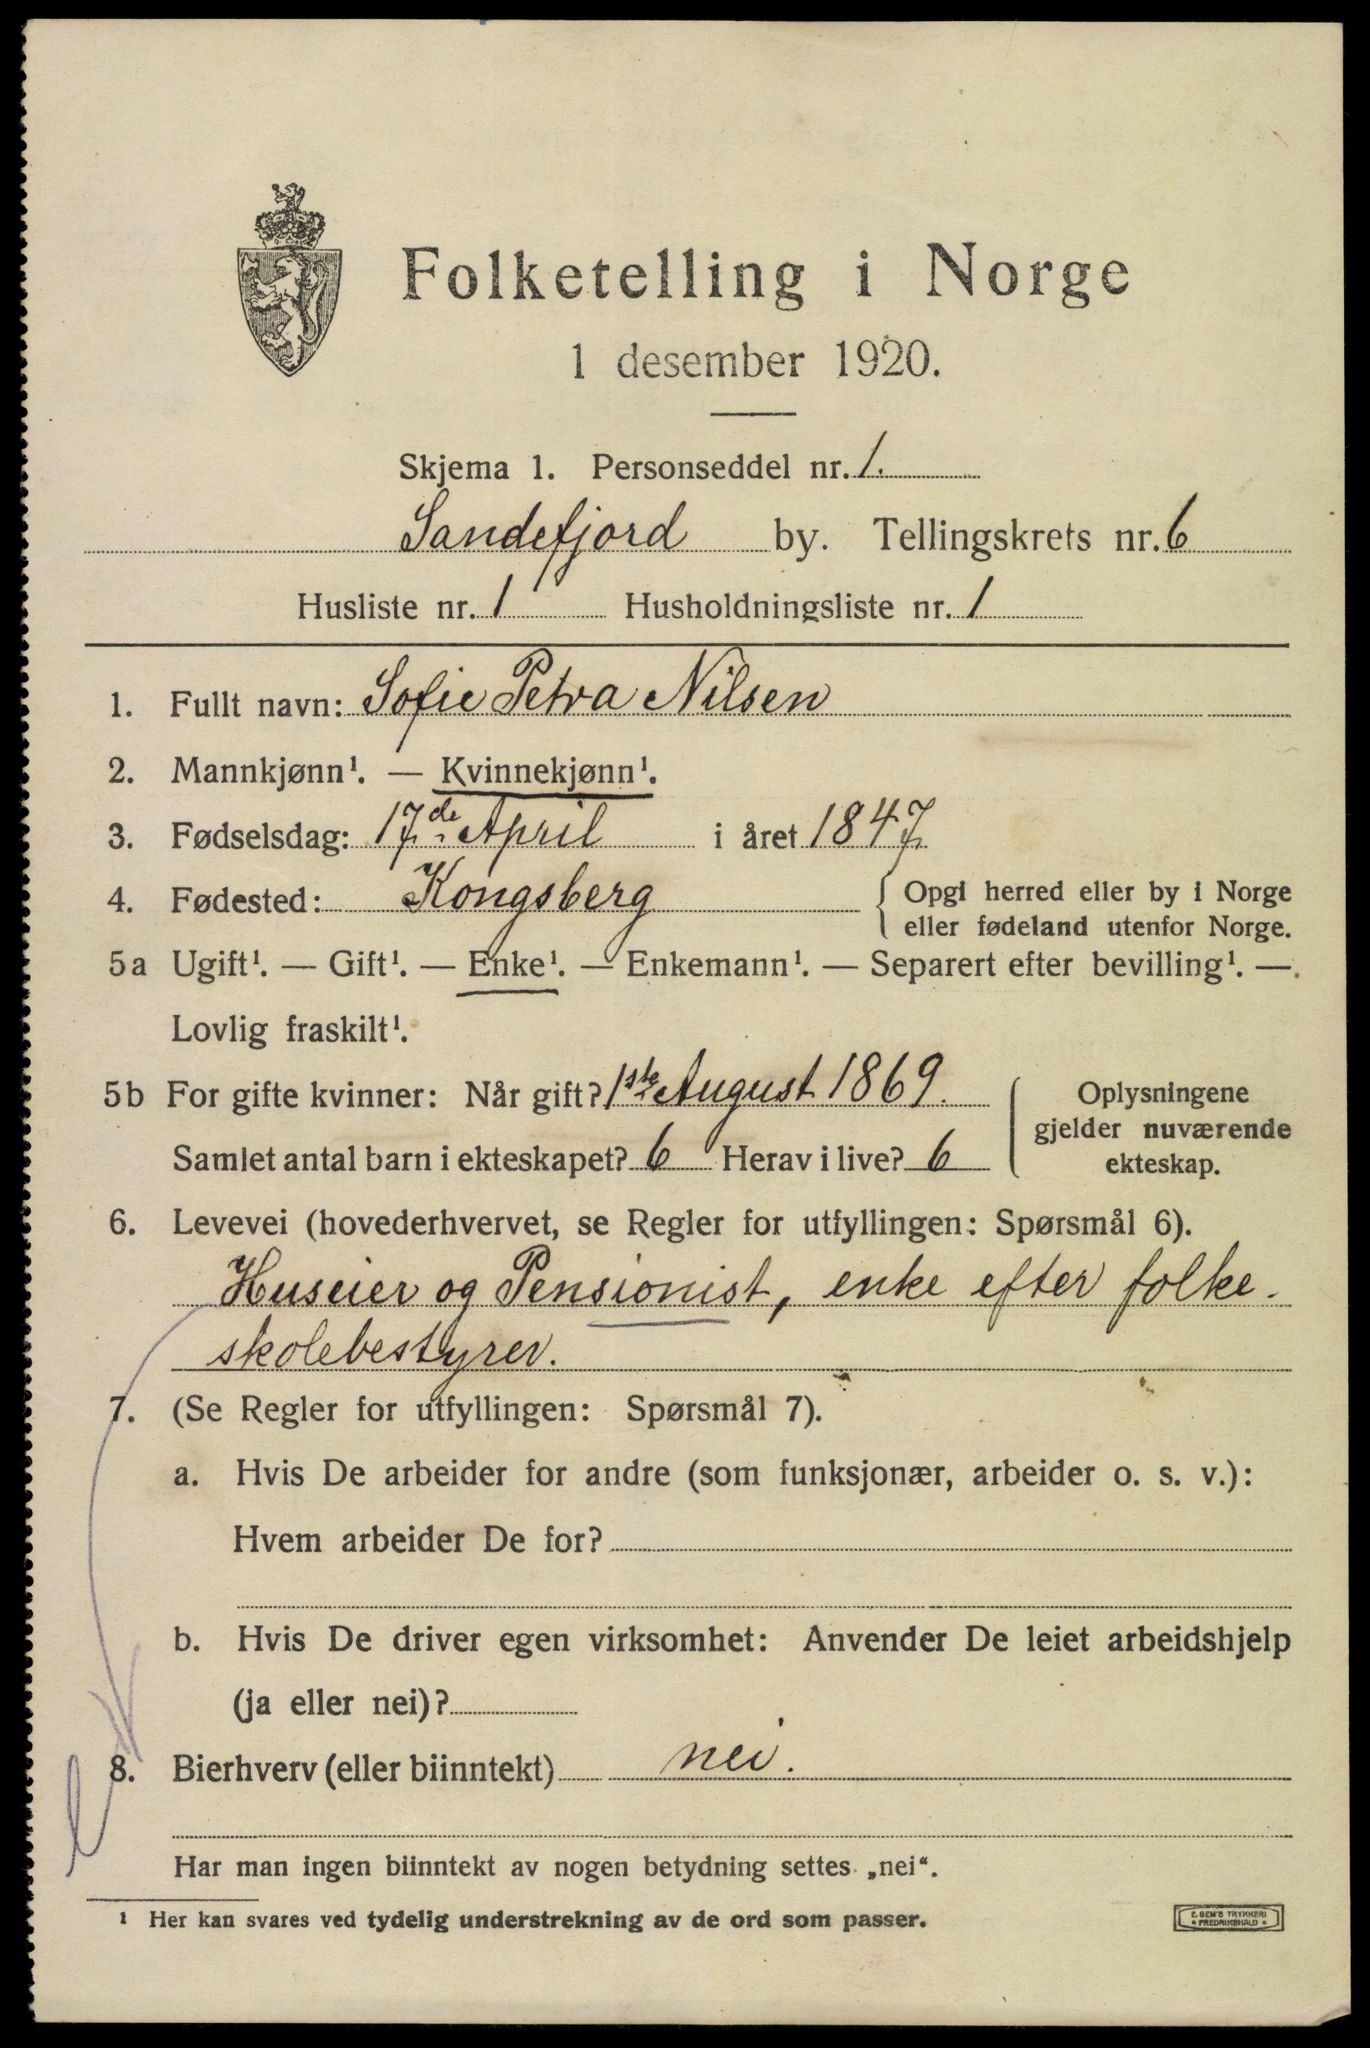 Folketelling i Norge
1 desember 1920.
Skjema 1. Personseddel nr. 1.
Sandefjord by. Tellingskrets nr. 6
Husliste nr. 1 Husholdningsliste nr. 1
1. Fullt navn: Sofie Petra Nilsen
2. Mannkjønn¹. — Kvinnekjønn¹.
3. Fødselsdag: 17de April i året 1847
4. Fødested: Kongsberg { Opgi herred eller by i Norge
eller fødeland utenfor Norge.
5a Ugift¹. — Gift¹. — Enke¹. — Enkemann¹. — Separert efter bevilling¹. —
Lovlig fraskilt¹.
5b For gifte kvinner: Når gift? 1ste August 1869.
Samlet antal barn i ekteskapet? 6 Herav i live? 6
Oplysningene
gjelder nuværende
ekteskap.
6. Levevei (hovederhvervet, se Regler for utfyllingen: Spørsmål 6).
Huseier og Pensionist, enke efter folke-
skolebestyrer.
7. (Se Regler for utfyllingen: Spørsmål 7).
a. Hvis De arbeider for andre (som funksjonær, arbeider o. s. v.):
Hvem arbeider De for?
b. Hvis De driver egen virksomhet: Anvender De leiet arbeidshjelp
(ja eller nei)?
8. Bierhverv (eller biinntekt) nei.
Har man ingen biinntekt av nogen betydning settes „nei“.
¹ Her kan svares ved tydelig understrekning av de ord som passer.
E. SEM'S TRYKKERI
FREDRIKSHALD